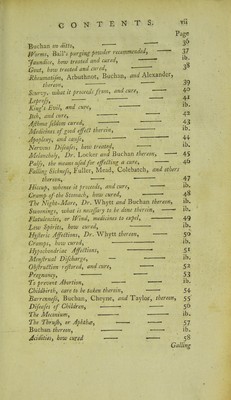 CONTENTS. vii
Page
Buchan on ditto, — — 36
Worms, Ball's purging powder recommended, — 37
Jaundice, how treated and cured, — ib.
Gout, how treated and cured, — 38
Rheumatism, Arbuthnot, Buchan, and Alexander,
therein, — — 39
Scurvy, what it proceeds from, and cure, — 40
Leprosy, — — 42
King's Evil, and cure, — ib.
Itch, and cure, — — 42
Asthma seldom cured, — — 43
Medicines of good effect therein, — ib.
Apoplexy, and cause, — — 44
Nervous Diseases, how treated, — ib.
Melancholy, Dr. Locher and Buchan thereon, — 45
Palsy, the means used for effecting a cure, — 46
Falling Sickness, Fuller, Mead, Colebatch, and others
thereon, — — 47
Hiccup, whence it proceeds, and cure, — ib.
Cramp of the Stomach, how cured, — 48
The Night-Mare, Dr. Whytt and Buchan thereon, ib.
Swoonings, what is necessary to be done therein, — ib.
Flatulencies, or Wind, medicines to expel, — 49
Low Spirits, how cured, — ib.
Hysteric Affections, Dr. Whytt thereon, — 50
Cramps, how cured, — — ib.
Hypochondriac Affections, — 51
Menstrual Discharge, — — ib.
Obstruction restored, and cure, — 52
Pregnancy, — — 53
To prevent Abortion, — — ib.
Childbirth, care to be taken therein, — 54
Barrenness, Buchan, Cheyne, and Taylor, thereon, 55
Diseases of Children, — — 56
The Meconium, — — ib.
The Thrush, or Aphthæ, — — 57
Buchan thereon, — — ib.
Acidities, how cured — — 58
Galling